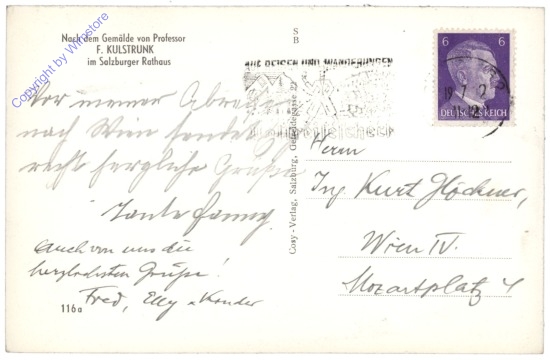 Nach dem Gemälde von Professor
F. KULSTRUNK
im Salzburger Rathaus
Copyright by Winstore
S
B
AUF REISEN UND WANDERUNGEN
6 6
DEUTSCHES REICH
Vor meiner Abreise
nach Wien sendet
recht herzliche Grüße
Tante Fanny.
Auch von uns die
herzlichsten Grüße!
Fred, Elly u
116a
Cosy-Verlag, Salzburg, Getreidegasse 22
Herrn
Ing Kurt Glöckner,
Wien IV.
Mozartplatz 4